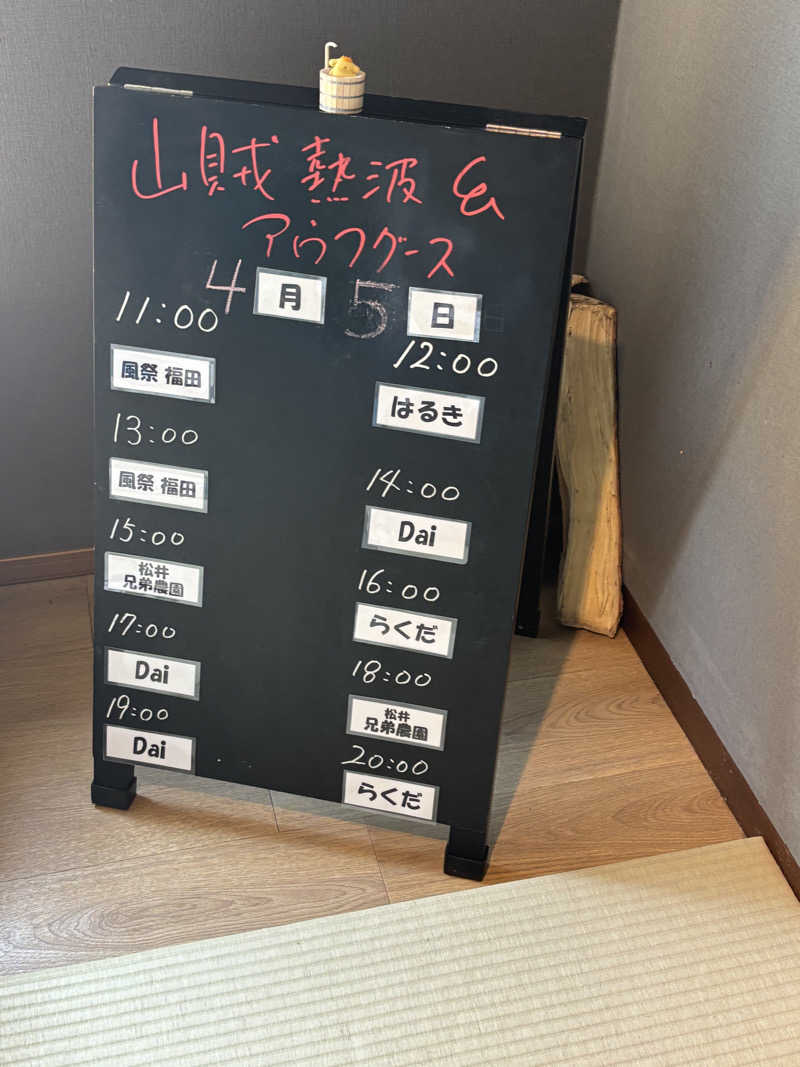 山賊 熱波 &
アウフグース
4 月 5 日
11:00
風祭 福田
12:00
はるき
13:00
風祭 福田
14:00
Dai
15:00
松井
兄弟農園
16:00
らくだ
17:00
Dai
18:00
松井
兄弟農園
19:00
Dai
20:00
らくだ